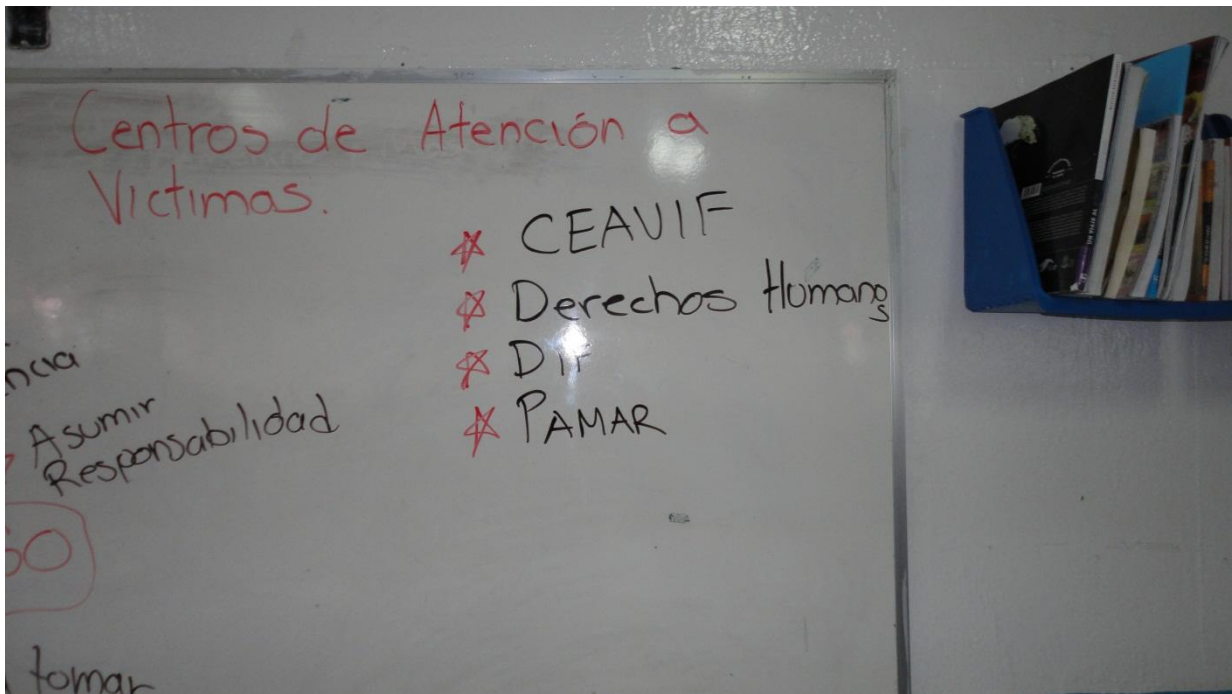 Centros de Atención a
Victimas.
CEAVIF
Derechos Humanos
DIF
PAMAR
Asumir
Responsabilidad
tomar